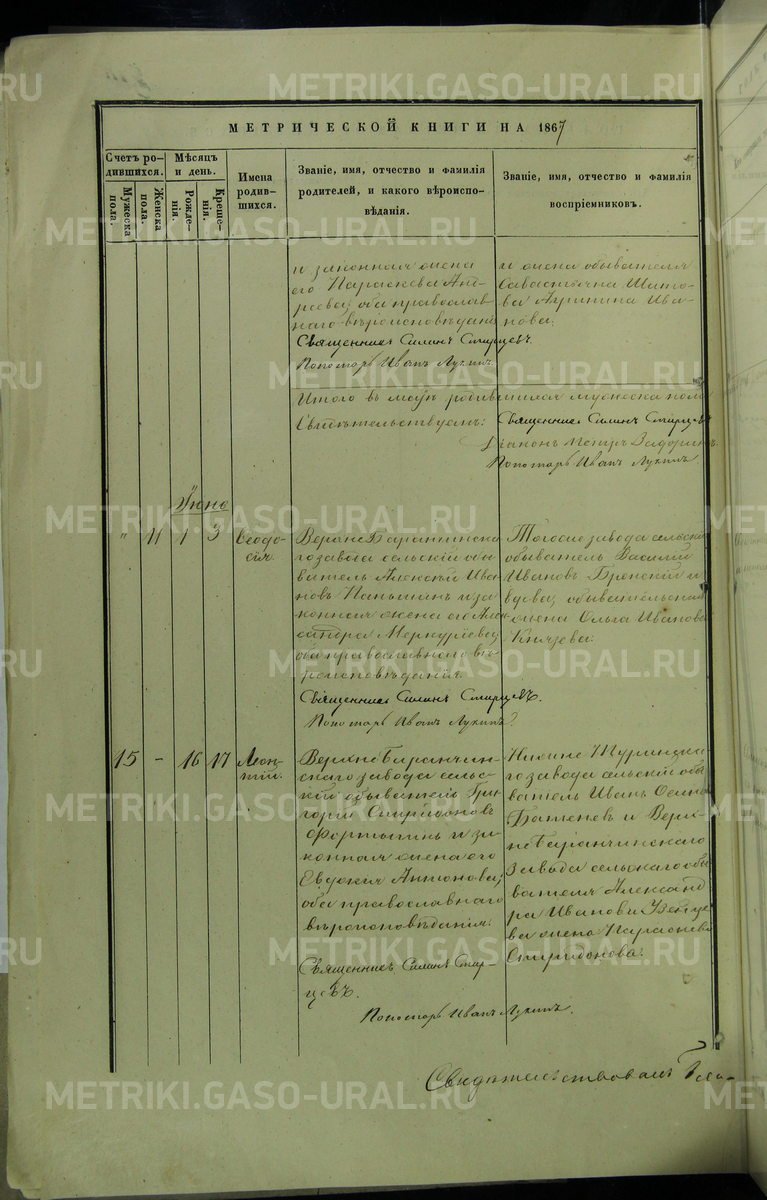 МЕТРИЧЕСКОЙ КНИГИ НА 1867
Счетъ ро-
дившихся.
Мужеска
пола.
Женска
пола.
Мѣсяцъ
и день.
Рожде-
нія.
Креще-
нія.
Имена
родив-
шихся.
Званіе, имя, отчество и фамилія
родителей, и какого вѣроиспо-
вѣданія.
Званіе, имя, отчество и фамилія
воспріемниковъ.
и законная жена
его Параскева Анд-
реева; оба православ-
наго вѣроисповѣданія.
Священникъ Силинъ
Пономарь Иванъ Лукинъ.
и жена обывателя
Агрипина Ива-
нова.
Итого въ маѣ родившихся мужеска пола
Свѣтельствуемъ: Священникъ Силинъ
Діаконъ Петръ
Пономарь Иванъ Лукинъ
Іюнь
" 11 1 3
Ѳеодо-
сія.
Верхне Баранчинска-
го завода сельскій обы-
ватель Алексѣй Ива-
новъ Паньшинъ и за-
конная жена его Алек-
сандра Меркуріева;
оба православнаго вѣ-
роисповѣданія.
Священникъ Силинъ
Пономарь Иванъ Лукинъ
Тогоже завода сельскій
обыватель Василій
Ивановъ и
вдова; обывательская
жена Ольга Иванова
Князева.
15 - 16 17
Леон-
тій.
Верхне Баранчин-
скаго завода сель-
скій обыватель Гри-
горій Спиридоновъ
и за-
конная жена его
Евдокія Антонова;
оба православнаго
вѣроисповѣданія.
Священникъ Силинъ
Пономарь Иванъ Лукинъ.
Нижне Туринска-
го завода сельскій обы-
ватель Иванъ
и Верх-
не Баранчинскаго
Завода сельскаго обы-
вателя Александ-
ра Иванова
жена Параскева
Спиридонова.
Свидѣтельствовалъ
METRIKI.GASO-URAL.RU